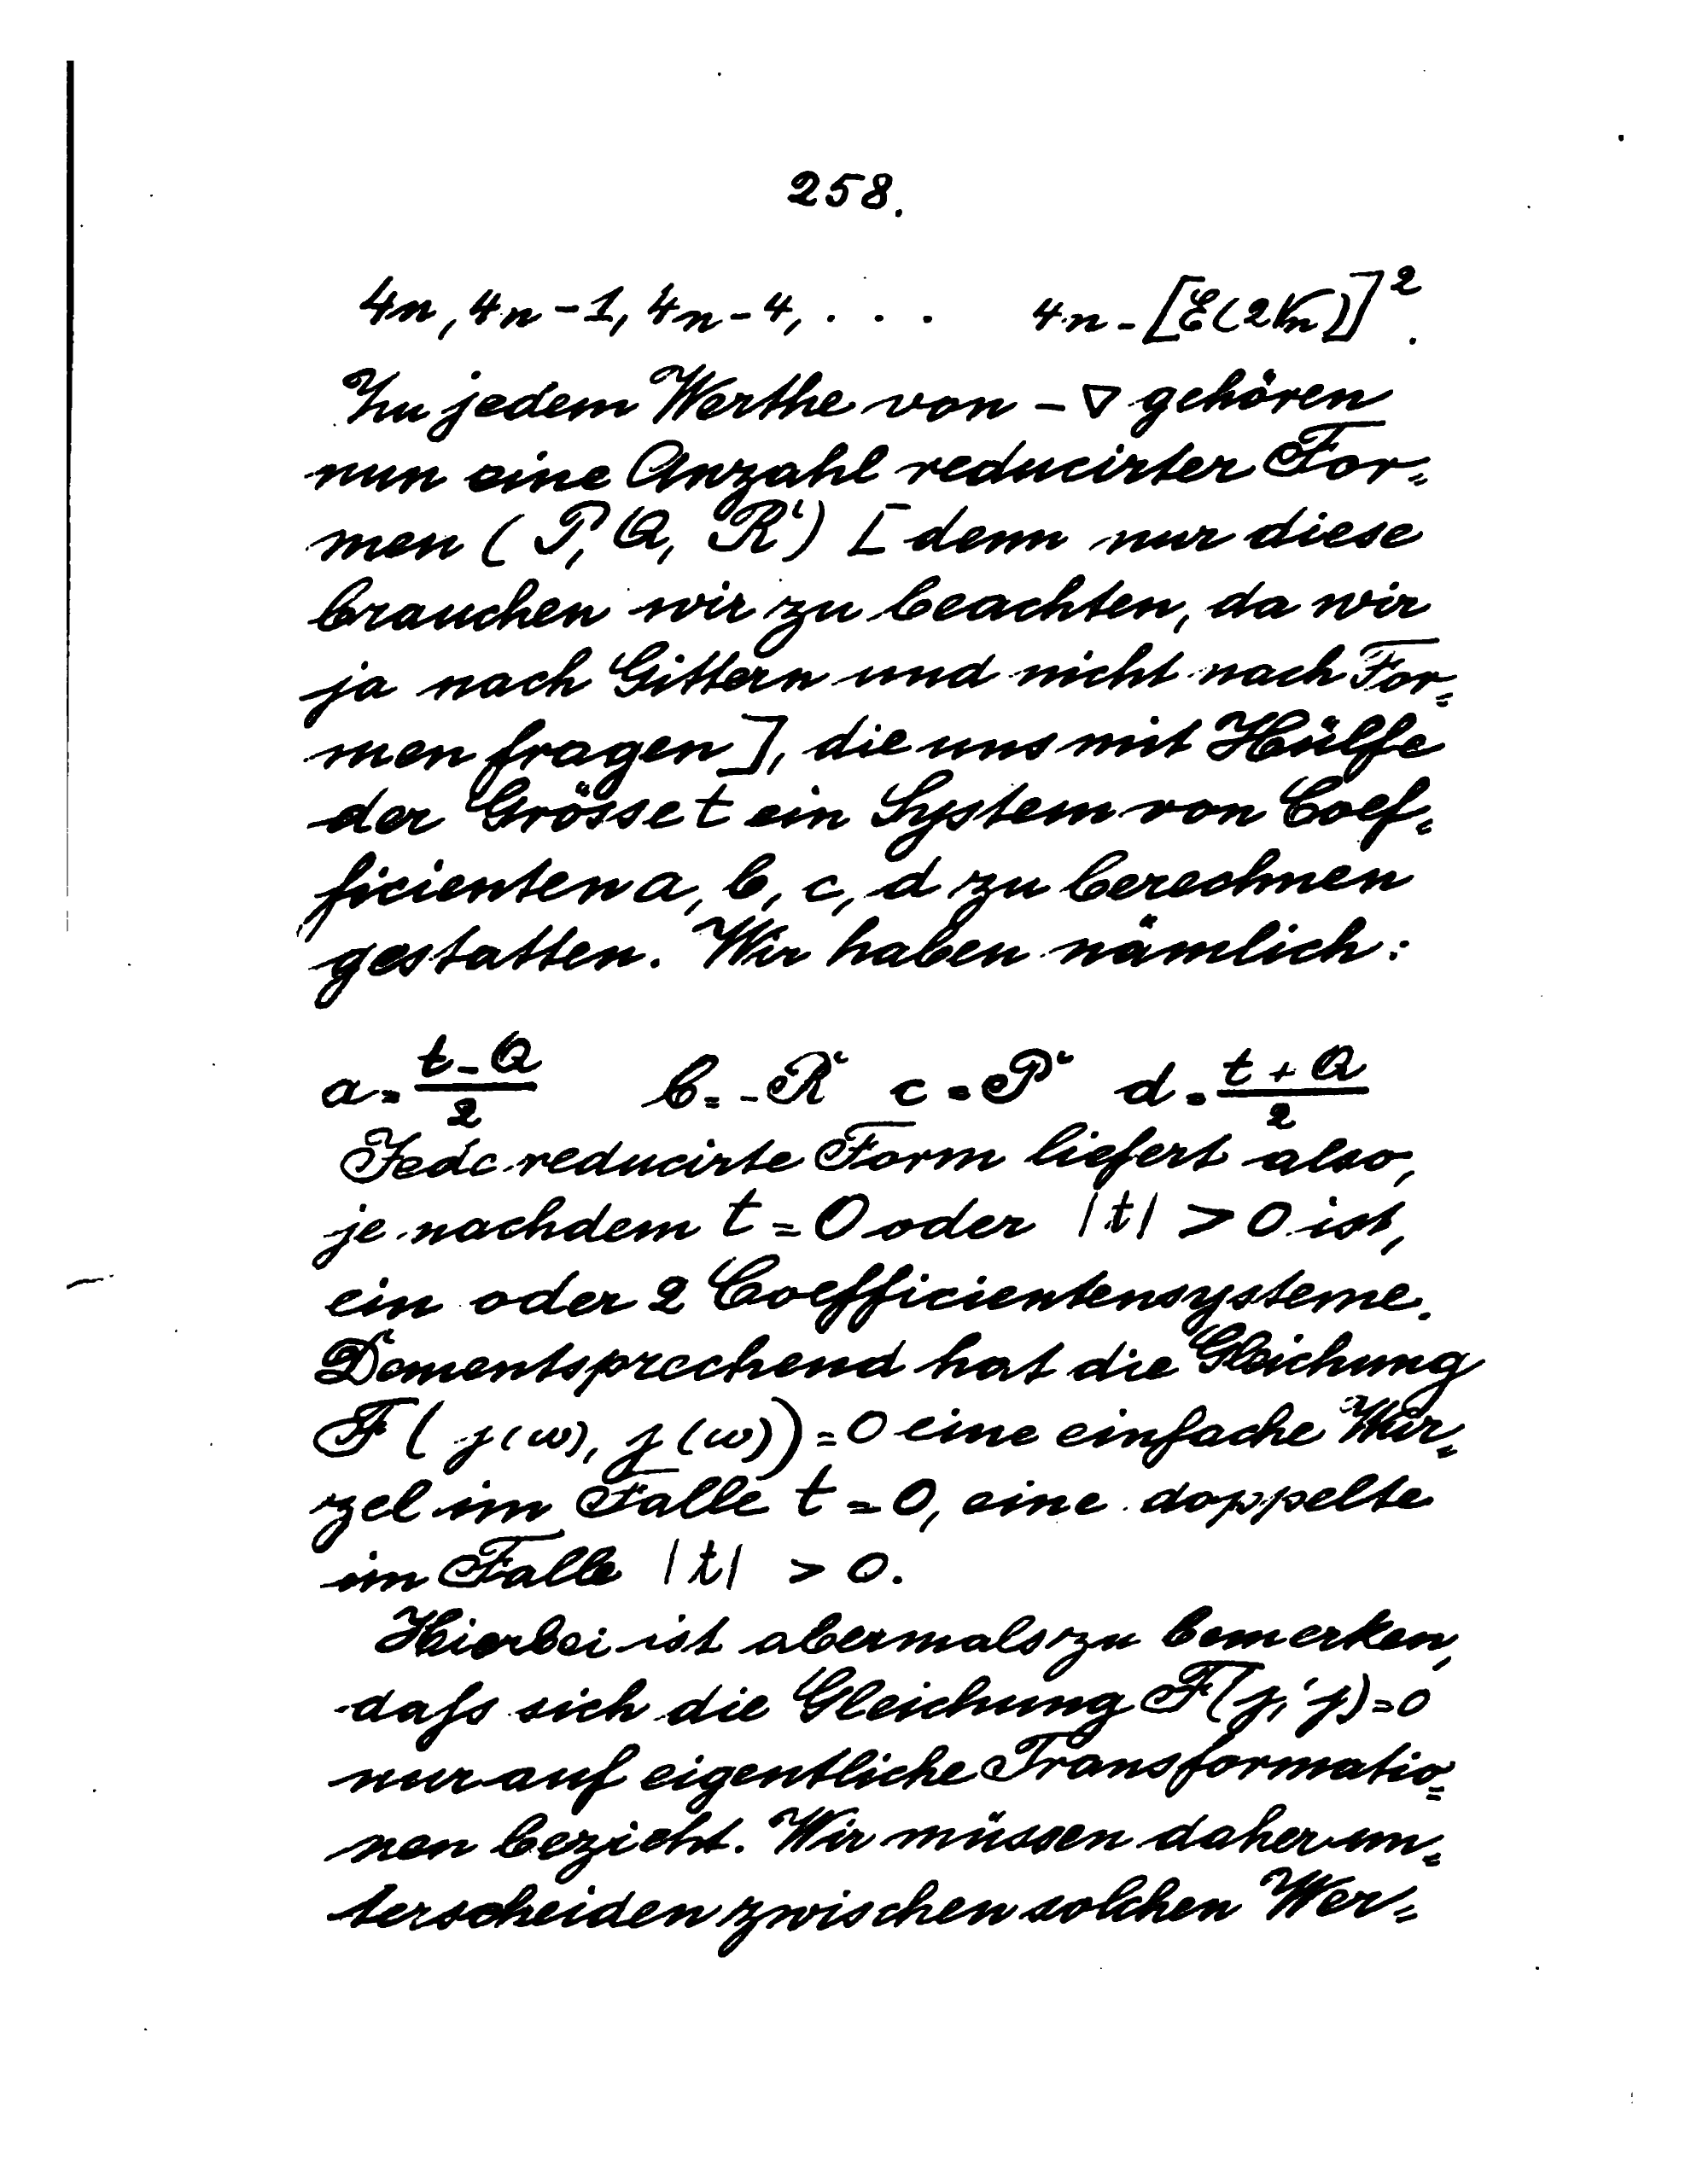 258.
4n, 4n-1, 4n-4, . . . 4n-[E(2√n)]².
Zu jedem Werthe von -∇ gehören
nun eine Anzahl reducirter For=
men (P, Q, R') [denn nur diese
brauchen wir zu beachten, da wir
ja nach Gittern und nicht nach For=
men fragen], die uns mit Hülfe
der Grösse t ein System von Coef=
ficienten a, b, c, d zu berechnen
gestatten. Wir haben nämlich:
a = (t-Q)/2 b = -R' c = P' d = (t+Q)/2
Jede reducirte Form liefert also,
je nachdem t = 0 oder |t| > 0 ist,
ein oder 2 Coefficientensysteme.
Dementsprechend hat die Gleichung
F(j(ω), j(ω)) = 0 eine einfache Wur=
zel im Falle t = 0, eine doppelte
im Falle |t| > 0.
Hierbei ist abermals zu bemerken,
daſs sich die Gleichung F(j', j) = 0
nur auf eigentliche Transformatio=
nen bezieht. Wir müssen daher un=
terscheiden zwischen solchen Wer=